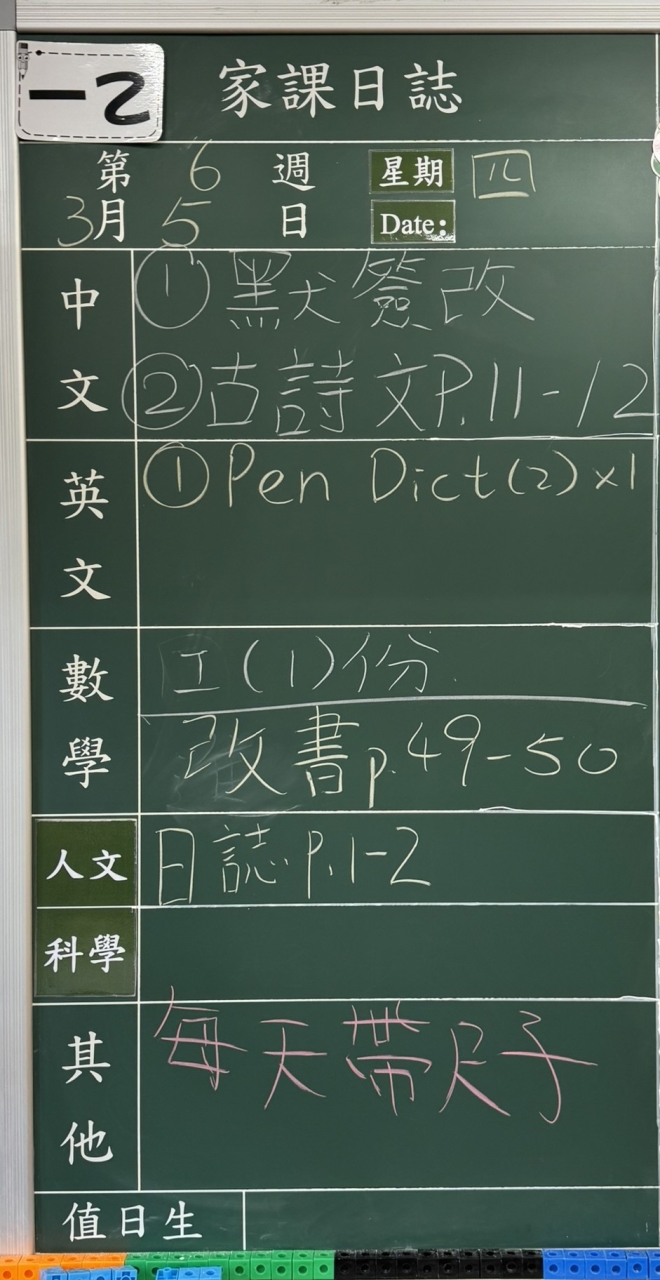 一2
家課日誌
第 6 週 星期 四
3月 5 日 Date:
中文 ①默犬簽改
②古詩文P.11-12
英文 ①Pen Dict(2)×1
數學 工(1)份
改書p.49-50
人文 日誌P.1-2
科學
其他 每天帶尺子
值日生